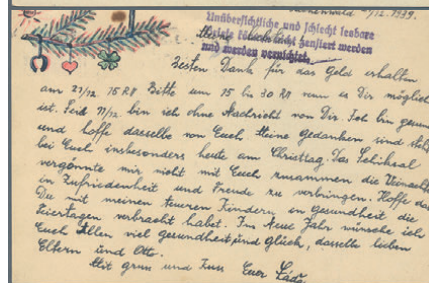 /12. 1939.
Unübersichtliche und schlecht lesbare
Briefe können nicht zensiert werden
und werden vernichtet.
Meine
Besten Dank für das Geld erhalten
am 21/12. 15 RM Bitte um 15 bis 30 RM wenn es Dir möglich
ist. Seit 11/12. bin ich ohne Nachricht von Dir. Ich bin gesund
und hoffe dasselbe von Euch. Meine Gedanken sind stets
bei Euch insbesonders heute am Christtag. Das Schiksal
vergönnte mir nicht mit Euch zusammen die Weinachten
in Zufriedenheit und Freude zu verbringen. Hoffe das
Du mit meinen teueren Kindern in Gesundheit die
Feiertagen verbracht habet. Im neue Jahr wünsche ich
Euch Allen viel gesundheit und Glück, dasselbe lieben
Eltern und Otto.
Mit gruss und Kuss Euer